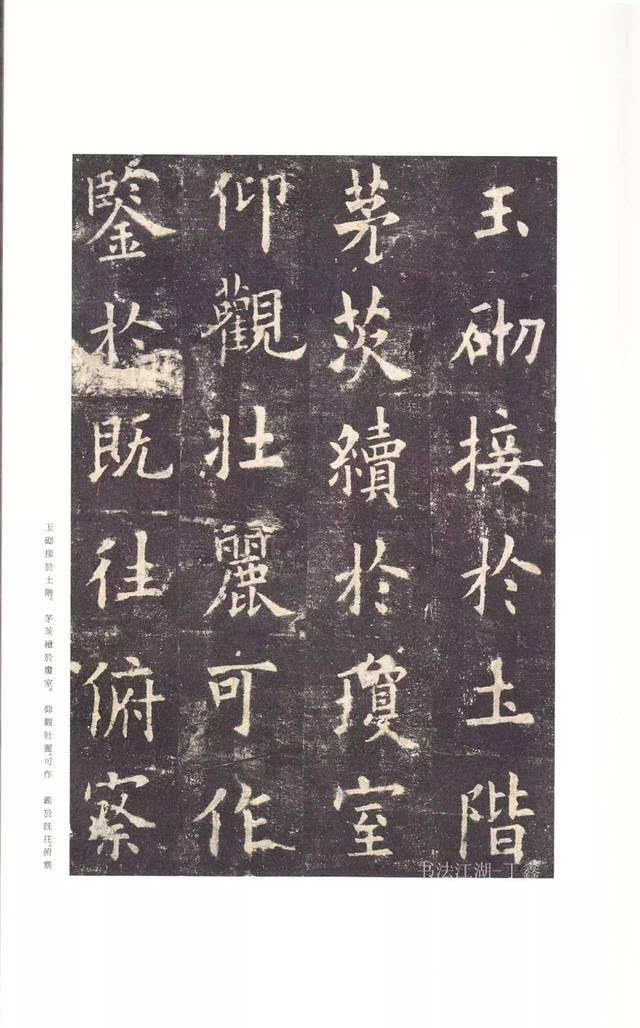 玉砌接於土階
茅茨續於瓊室
仰觀壯麗可作
鑒於既往俯察
玉砌接於土階。茅茨續於瓊室。仰觀壯麗。可作 鑑於既往。俯察
书法江湖-丁鑫